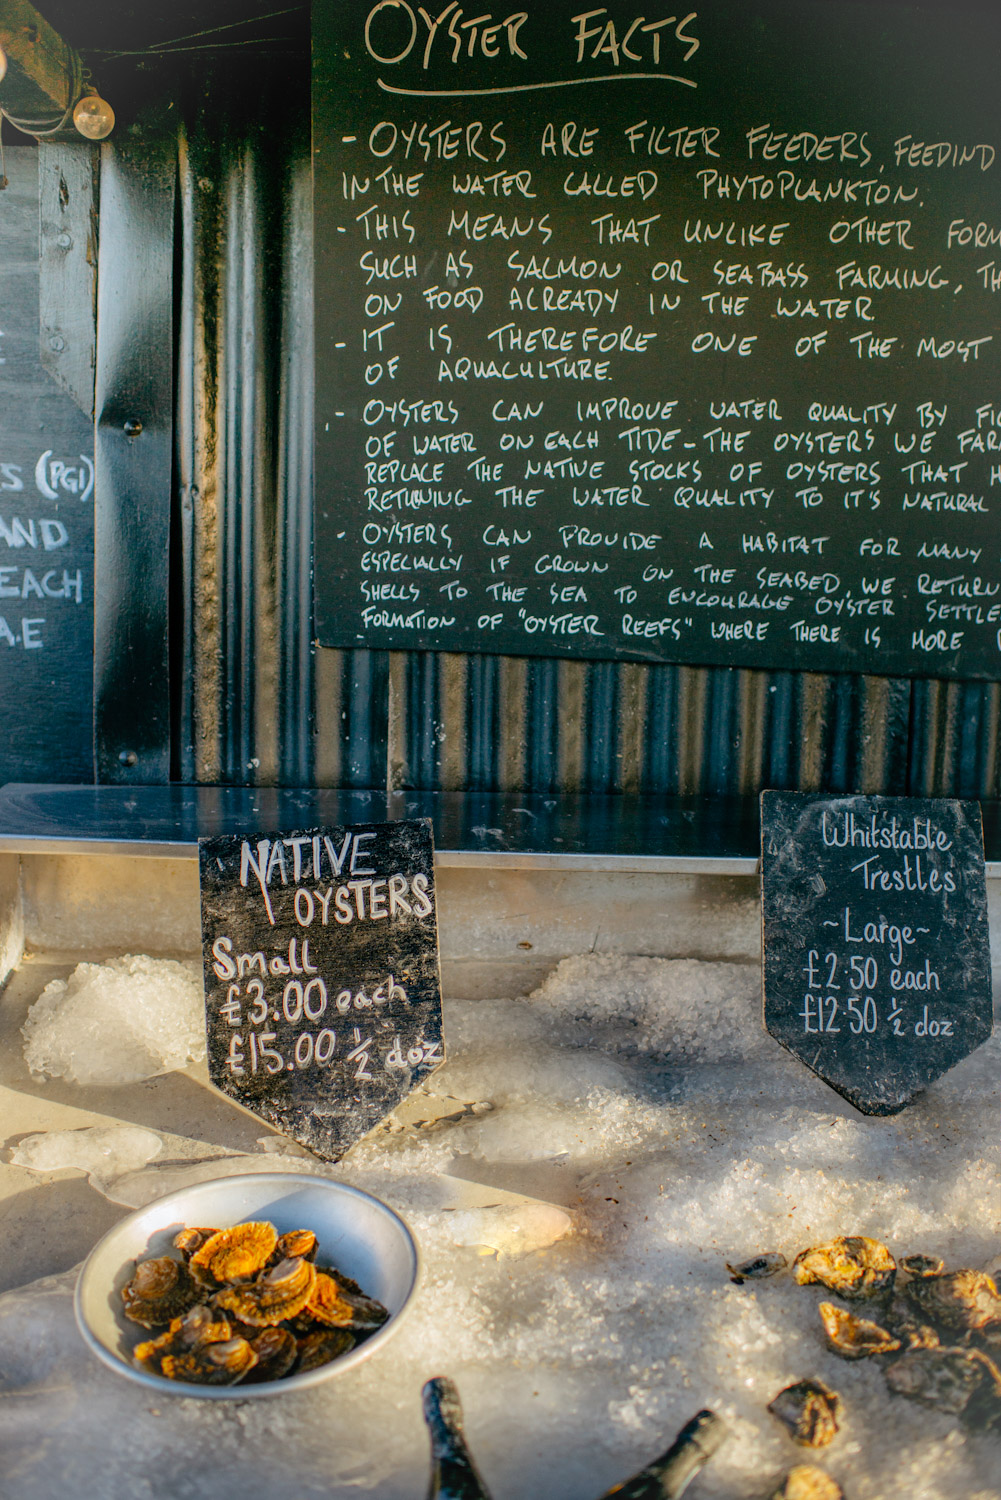 OYSTER FACTS
- OYSTERS ARE FILTER FEEDERS, FEEDIND
IN THE WATER CALLED PHYTOPLANKTON.
- THIS MEANS THAT UNLIKE OTHER FORM
SUCH AS SALMON OR SEABASS FARMING, TH
ON FOOD ALREADY IN THE WATER.
- IT IS THEREFORE ONE OF THE MOST
OF AQUACULTURE.
- OYSTERS CAN IMPROVE WATER QUALITY BY FI
OF WATER ON EACH TIDE - THE OYSTERS WE FAR
REPLACE THE NATIVE STOCKS OF OYSTERS THAT H
RETURNING THE WATER QUALITY TO IT'S NATURAL
- OYSTERS CAN PROVIDE A HABITAT FOR MANY
ESPECIALLY IF GROWN ON THE SEABED. WE RETUR
SHELLS TO THE SEA TO ENCOURAGE OYSTER SETTLE
FORMATION OF "OYSTER REEFS" WHERE THERE IS MORE
S (PGI)
AND
EACH
A.E
NATIVE
OYSTERS
Small
£3.00 each
£15.00 ½ doz
Whitstable
Trestles
~Large~
£2.50 each
£12.50 ½ doz